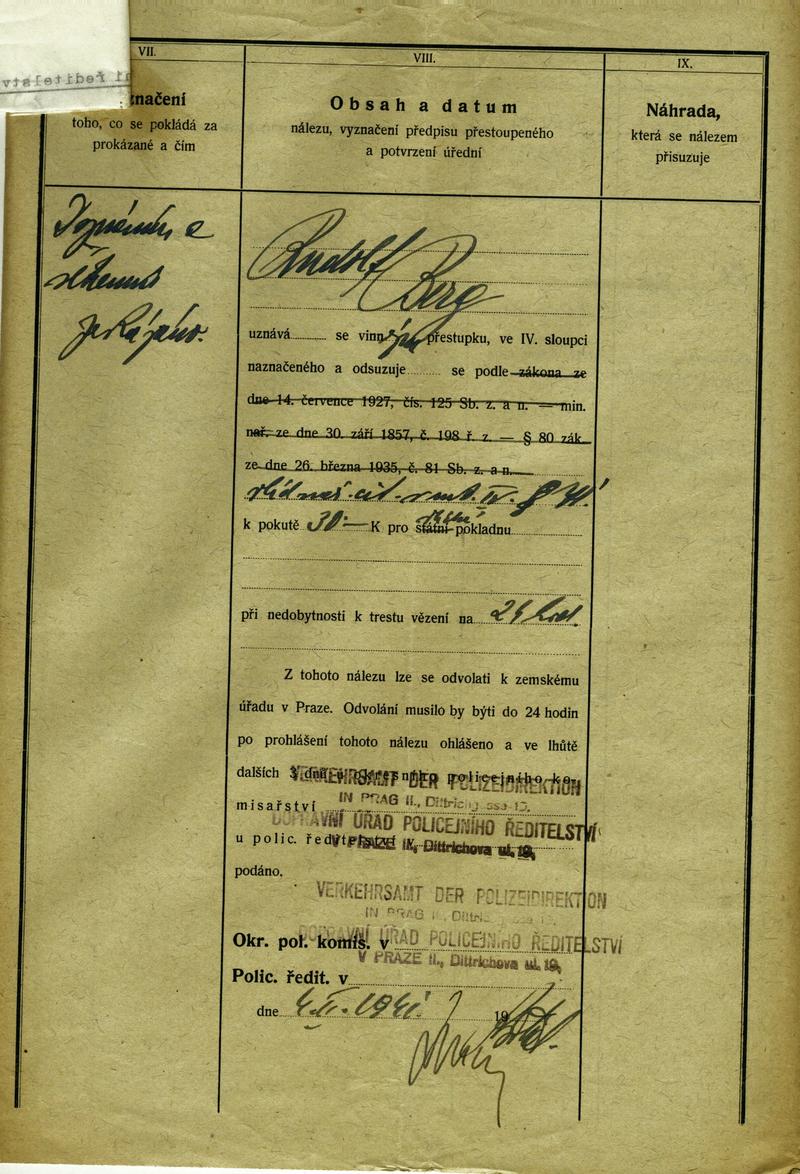 VII.
značení
toho, co se pokládá za
prokázané a čím
VIII.
Obsah a datum
nálezu, vyznačení předpisu přestoupeného
a potvrzení úřední
IX.
Náhrada,
která se nálezem
přisuzuje
Rudolf
Berg
uznává se vinn přestupku, ve IV. sloupci
naznačeného a odsuzuje se podle zákona ze
dne 14. července 1927, čís. 125 Sb. z. a n. — min.
nař. ze dne 30. září 1857, č. 198 ř. z. — § 80 zák.
ze dne 26. března 1935, č. 81 Sb. z. a n.
k pokutě 30.— K pro státní pokladnu
při nedobytnosti k trestu vězení na 24 hod.
Z tohoto nálezu lze se odvolati k zemskému
úřadu v Praze. Odvolání musilo by býti do 24 hodin
po prohlášení tohoto nálezu ohlášeno a ve lhůtě
dalších
VERKEHRSAMT DER POLIZEIDIREKTION
misařství
IN PRAG II., Dittrichgasse 19.
DOPRAVNÍ ÚŘAD POLICEJNÍHO ŘEDITELSTVÍ
u polic. ředit.
V PRAZE II., Dittrichova ul. 19,
podáno.
VERKEHRSAMT DER POLIZEIDIREKTION
IN PRAG
Okr. pol. komis. v
DOPRAVNÍ ÚŘAD POLICEJNÍHO ŘEDITELSTVÍ
V PRAZE II., Dittrichova ul. 19,
Polic. ředit. v
dne 19